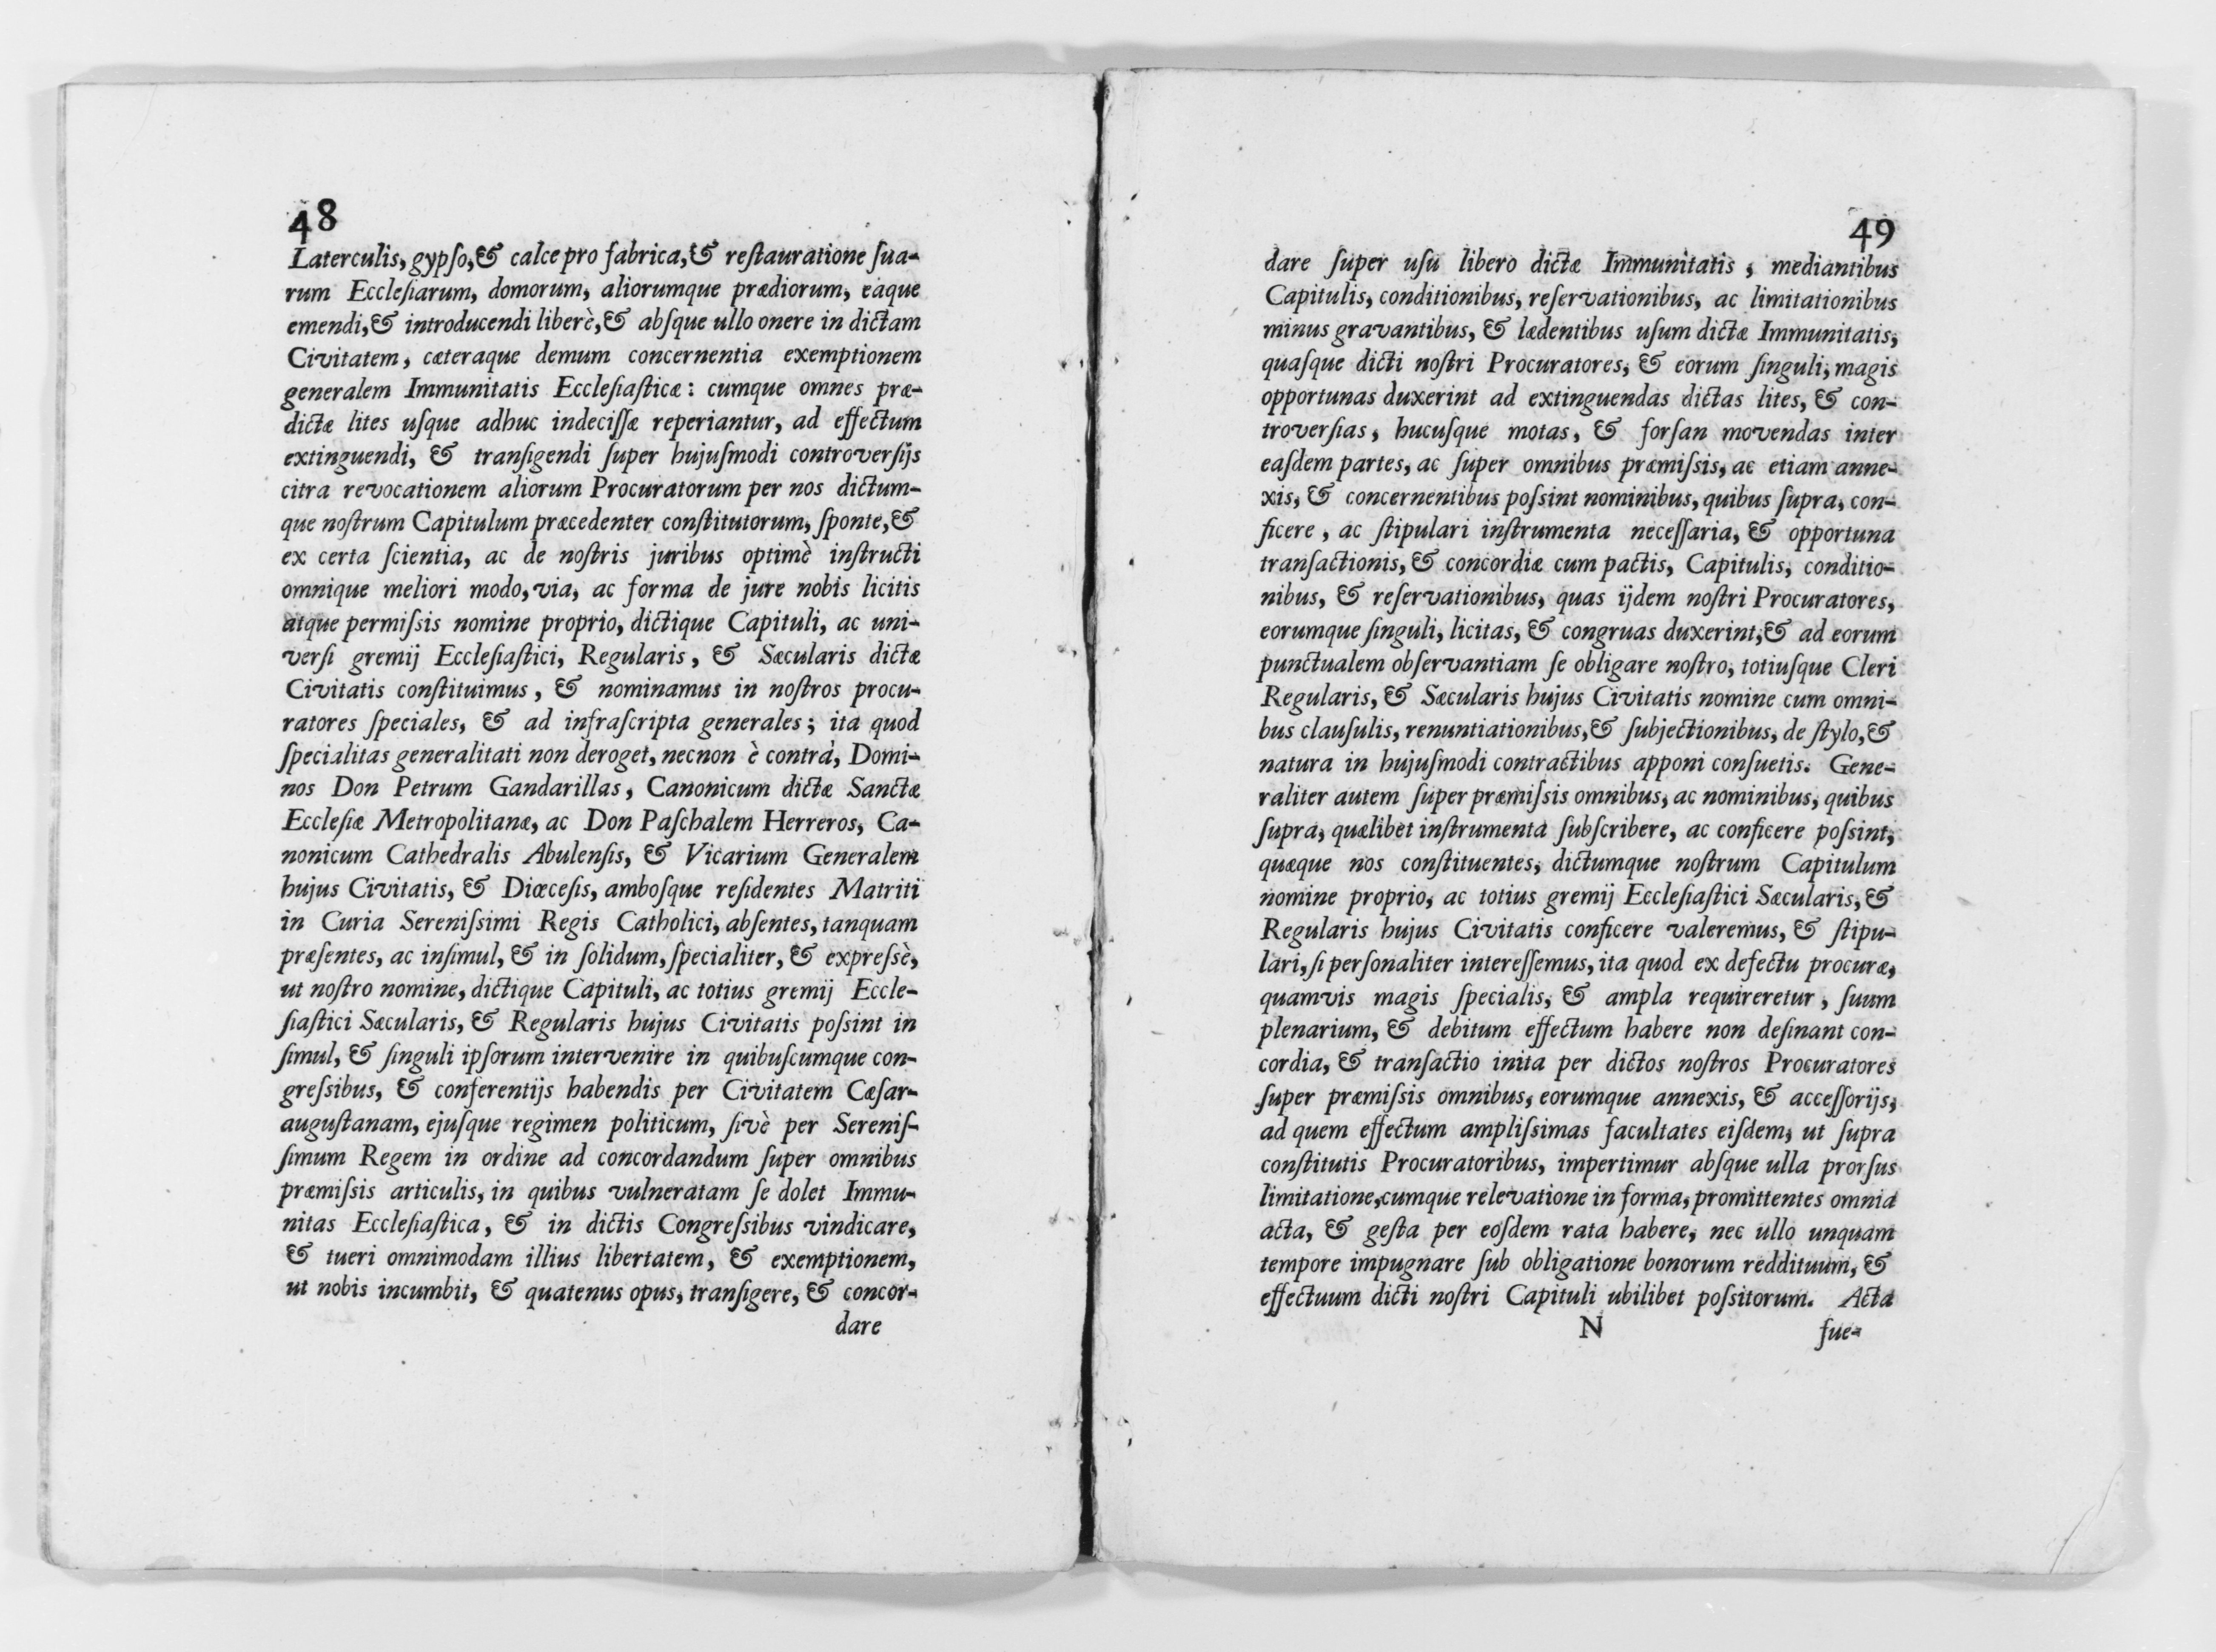 48
Laterculis, gypſo, & calce pro fabrica, & reſtauratione ſua-
rum Eccleſiarum, domorum, aliorumque prædiorum, eaque
emendi, & introducendi liberè, & abſque ullo onere in dictam
Civitatem, cæteraque demum concernentia exemptionem
generalem Immunitatis Eccleſiaſticæ: cumque omnes præ-
dictæ lites uſque adhuc indeciſſæ reperiantur, ad effectum
extinguendi, & tranſigendi ſuper hujuſmodi controverſijs
citra revocationem aliorum Procuratorum per nos dictum-
que noſtrum Capitulum præcedenter conſtitutorum, ſponte, &
ex certa ſcientia, ac de noſtris juribus optimè inſtructi
omnique meliori modo, via, ac forma de jure nobis licitis
atque permiſsis nomine proprio, dictique Capituli, ac uni-
verſi gremij Eccleſiaſtici, Regularis, & Sæcularis dictæ
Civitatis conſtituimus, & nominamus in noſtros procu-
ratores ſpeciales, & ad infraſcripta generales; ita quod
ſpecialitas generalitati non deroget, necnon è contrà, Domi-
nos Don Petrum Gandarillas, Canonicum dictæ Sanctæ
Eccleſiæ Metropolitanæ, ac Don Paſchalem Herreros, Ca-
nonicum Cathedralis Abulenſis, & Vicarium Generalem
hujus Civitatis, & Diœceſis, amboſque reſidentes Matriti
in Curia Sereniſsimi Regis Catholici, abſentes, tanquam
præſentes, ac inſimul, & in ſolidum, ſpecialiter, & expreſsè,
ut noſtro nomine, dictique Capituli, ac totius gremij Eccle-
ſiaſtici Sæcularis, & Regularis hujus Civitatis poſsint in
ſimul, & ſinguli ipſorum intervenire in quibuſcumque con-
greſsibus, & conferentijs habendis per Civitatem Cæſar-
auguſtanam, ejuſque regimen politicum, ſivè per Sereniſ-
ſimum Regem in ordine ad concordandum ſuper omnibus
præmiſsis articulis, in quibus vulneratam ſe dolet Immu-
nitas Eccleſiaſtica, & in dictis Congreſsibus vindicare,
& tueri omnimodam illius libertatem, & exemptionem,
ut nobis incumbit, & quatenus opus, tranſigere, & concor-
dare
49
dare ſuper uſu libero dictæ Immunitatis, mediantibus
Capitulis, conditionibus, reſervationibus, ac limitationibus
minus gravantibus, & lædentibus uſum dictæ Immunitatis,
quaſque dicti noſtri Procuratores, & eorum ſinguli, magis
opportunas duxerint ad extinguendas dictas lites, & con-
troverſias, hucuſque motas, & forſan movendas inter
eaſdem partes, ac ſuper omnibus præmiſsis, ac etiam anne-
xis, & concernentibus poſsint nominibus, quibus ſupra, con-
ficere, ac ſtipulari inſtrumenta neceſſaria, & opportuna
tranſactionis, & concordiæ cum pactis, Capitulis, conditio-
nibus, & reſervationibus, quas ijdem noſtri Procuratores,
eorumque ſinguli, licitas, & congruas duxerint, & ad eorum
punctualem obſervantiam ſe obligare noſtro, totiuſque Cleri
Regularis, & Sæcularis hujus Civitatis nomine cum omni-
bus clauſulis, renuntiationibus, & ſubjectionibus, de ſtylo, &
natura in hujuſmodi contractibus apponi conſuetis. Gene-
raliter autem ſuper præmiſsis omnibus, ac nominibus, quibus
ſupra, quælibet inſtrumenta ſubſcribere, ac conficere poſsint,
quæque nos conſtituentes, dictumque noſtrum Capitulum
nomine proprio, ac totius gremij Eccleſiaſtici Sæcularis, &
Regularis hujus Civitatis conficere valeremus, & ſtipu-
lari, ſi perſonaliter intereſſemus, ita quod ex defectu procuræ,
quamvis magis ſpecialis, & ampla requireretur, ſuum
plenarium, & debitum effectum habere non deſinant con-
cordia, & tranſactio inita per dictos noſtros Procuratores
ſuper præmiſsis omnibus, eorumque annexis, & acceſſorijs,
ad quem effectum ampliſsimas facultates eiſdem, ut ſupra
conſtitutis Procuratoribus, impertimur abſque ulla prorſus
limitatione, cumque relevatione in forma, promittentes omnia
acta, & geſta per eoſdem rata habere, nec ullo unquam
tempore impugnare ſub obligatione bonorum reddituum, &
effectuum dicti noſtri Capituli ubilibet poſsitorum. Acta
N fue-